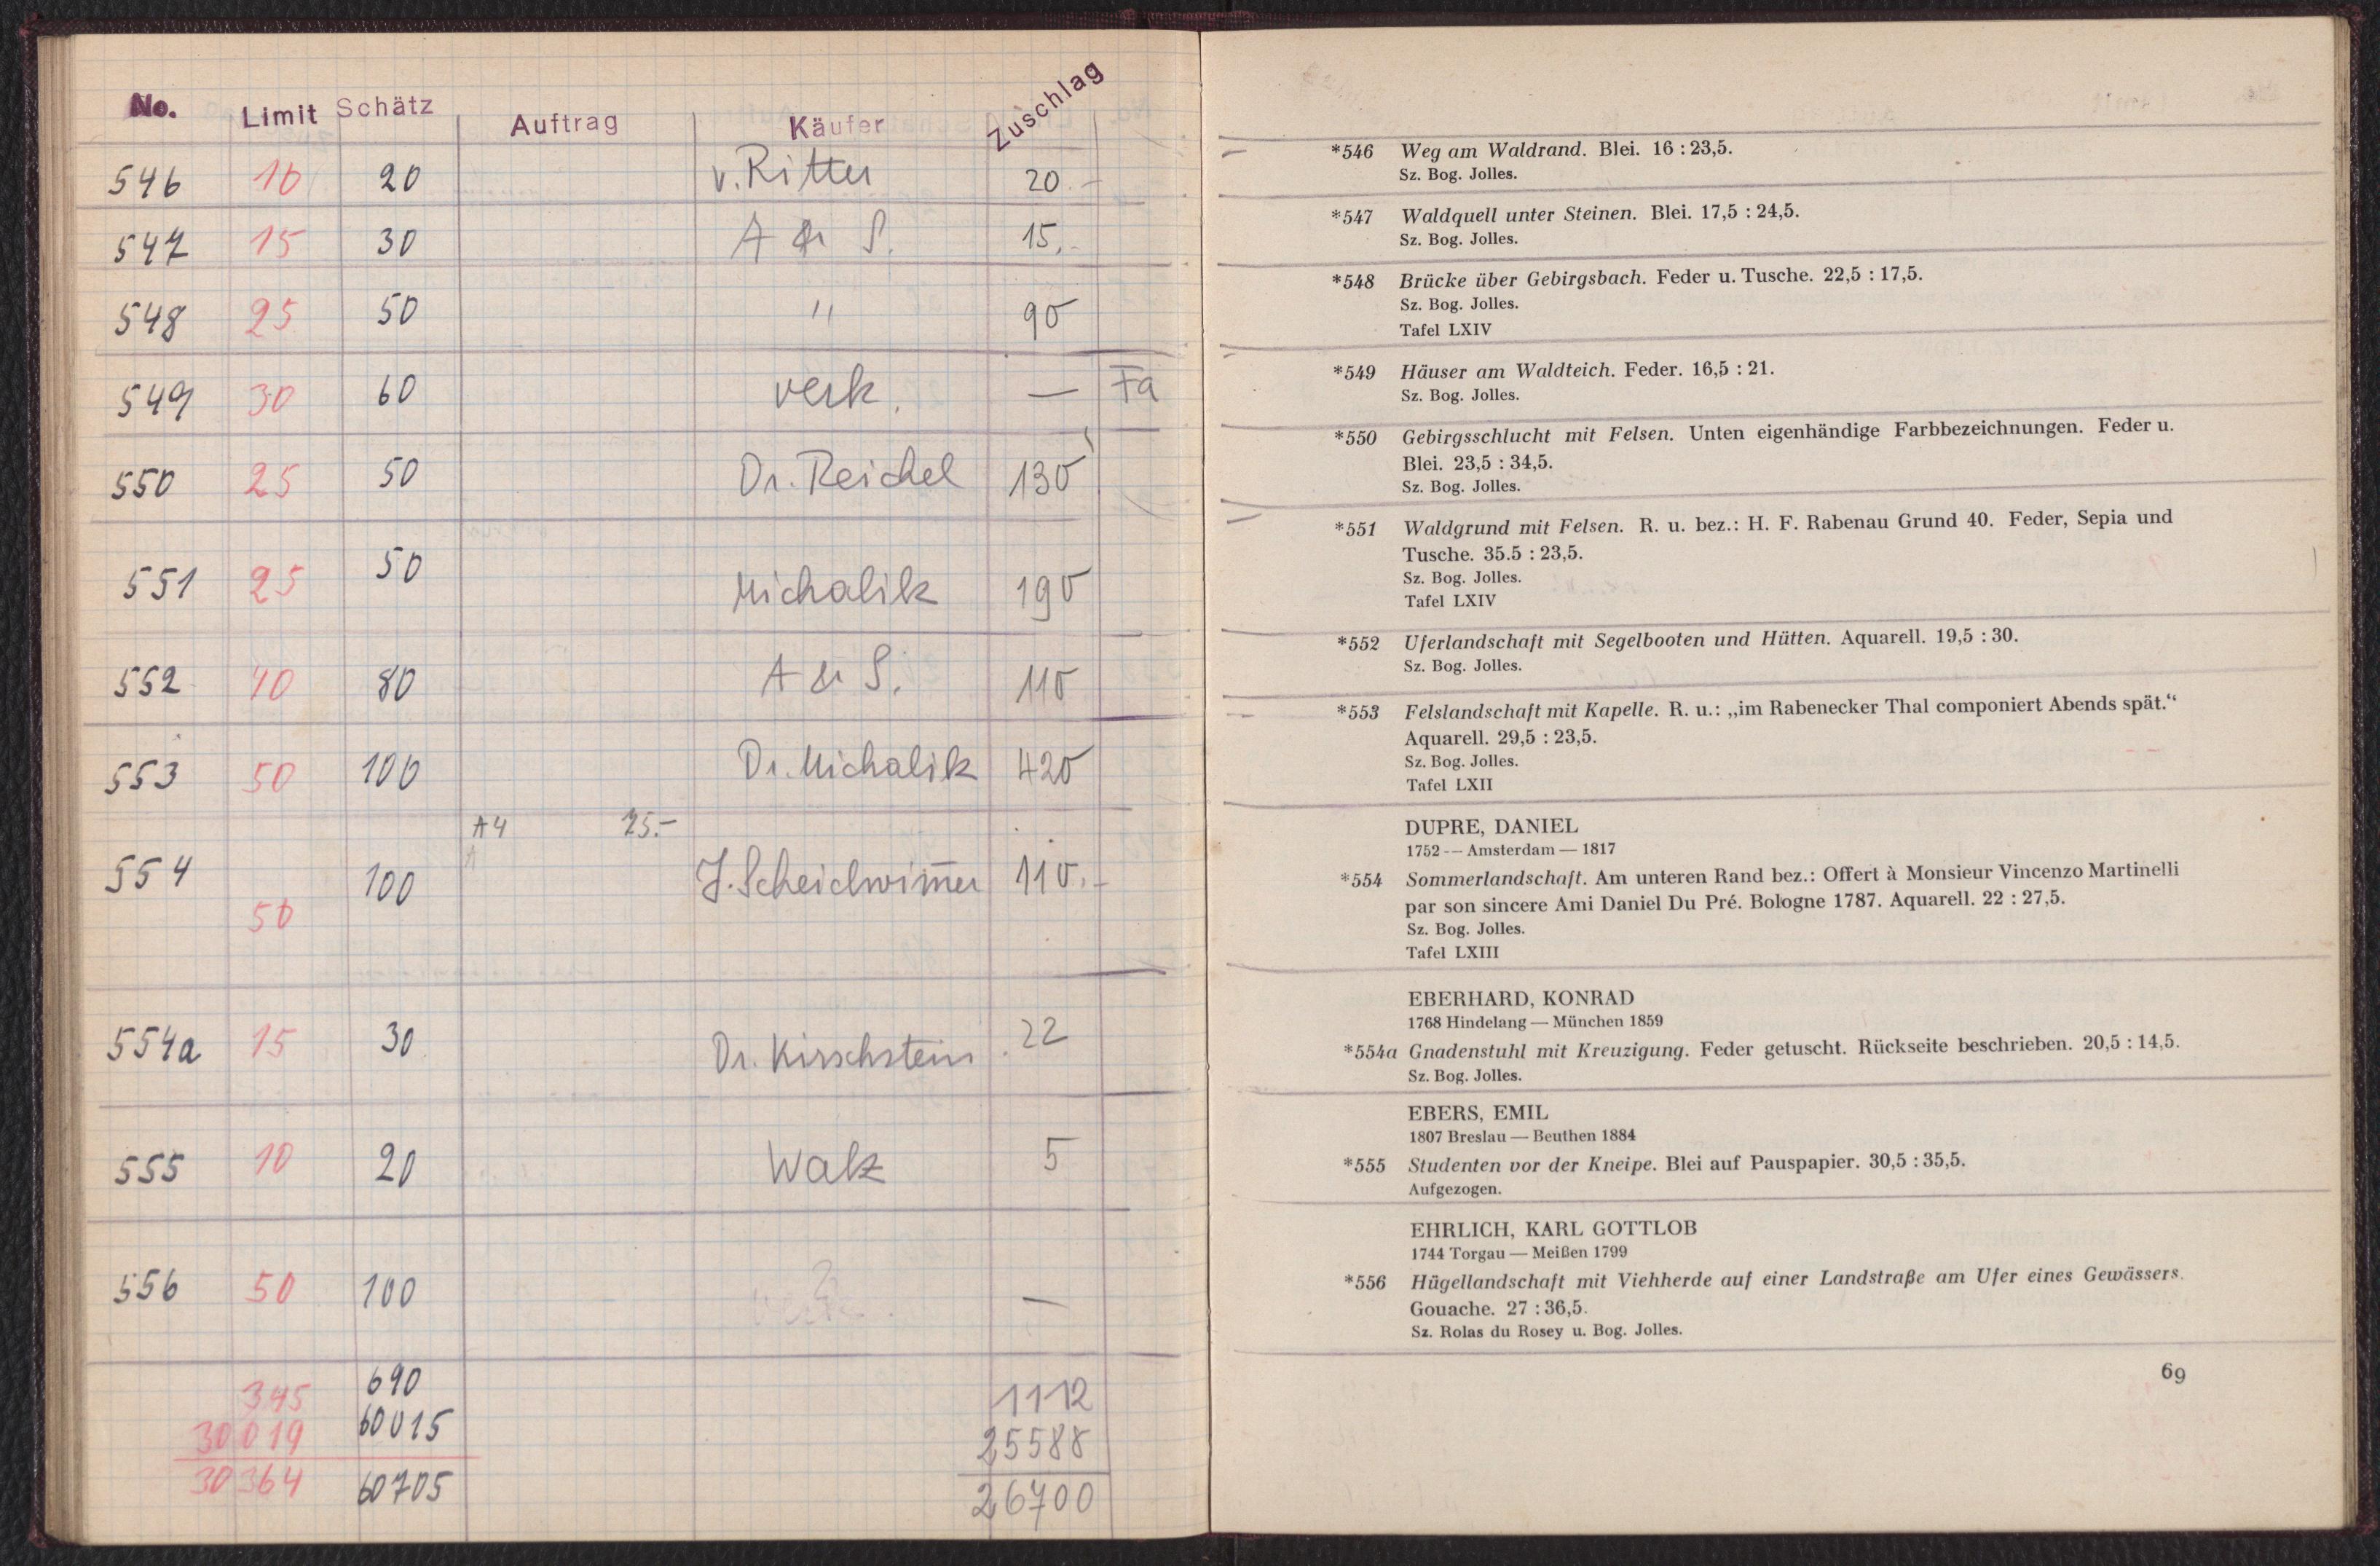 No. Limit Schätz Auftrag Käufer Zuschlag
546 10 20 v. Ritter 20.-
547 15 30 A & S. 15.-
548 25 50 " 90
549 30 60 verk. — Fa
550 25 50 Dr. Reichel 130
551 25 50 Michalik 190
552 40 80 A & S. 110
553 50 100 Dr. Michalik 420
A4 25.-
554 50 100 J. Scheidwimmer 110.-
554a 15 30 Dr. Kirschstein 22
555 10 20 Walz 5
556 50 100 ? —
345 690 1112
30019 60015 25588
30364 60705 26700
*546 Weg am Waldrand. Blei. 16 : 23,5.
Sz. Bog. Jolles.
*547 Waldquell unter Steinen. Blei. 17,5 : 24,5.
Sz. Bog. Jolles.
*548 Brücke über Gebirgsbach. Feder u. Tusche. 22,5 : 17,5.
Sz. Bog. Jolles.
Tafel LXIV
*549 Häuser am Waldteich. Feder. 16,5 : 21.
Sz. Bog. Jolles.
*550 Gebirgsschlucht mit Felsen. Unten eigenhändige Farbbezeichnungen. Feder u.
Blei. 23,5 : 34,5.
Sz. Bog. Jolles.
*551 Waldgrund mit Felsen. R. u. bez.: H. F. Rabenau Grund 40. Feder, Sepia und
Tusche. 35.5 : 23,5.
Sz. Bog. Jolles.
Tafel LXIV
*552 Uferlandschaft mit Segelbooten und Hütten. Aquarell. 19,5 : 30.
Sz. Bog. Jolles.
*553 Felslandschaft mit Kapelle. R. u.: „im Rabenecker Thal componiert Abends spät.“
Aquarell. 29,5 : 23,5.
Sz. Bog. Jolles.
Tafel LXII
DUPRE, DANIEL
1752 -- Amsterdam — 1817
*554 Sommerlandschaft. Am unteren Rand bez.: Offert à Monsieur Vincenzo Martinelli
par son sincere Ami Daniel Du Pré. Bologne 1787. Aquarell. 22 : 27,5.
Sz. Bog. Jolles.
Tafel LXIII
EBERHARD, KONRAD
1768 Hindelang — München 1859
*554a Gnadenstuhl mit Kreuzigung. Feder getuscht. Rückseite beschrieben. 20,5 : 14,5.
Sz. Bog. Jolles.
EBERS, EMIL
1807 Breslau — Beuthen 1884
*555 Studenten vor der Kneipe. Blei auf Pauspapier. 30,5 : 35,5.
Aufgezogen.
EHRLICH, KARL GOTTLOB
1744 Torgau — Meißen 1799
*556 Hügellandschaft mit Viehherde auf einer Landstraße am Ufer eines Gewässers.
Gouache. 27 : 36,5.
Sz. Rolas du Rosey u. Bog. Jolles.
69